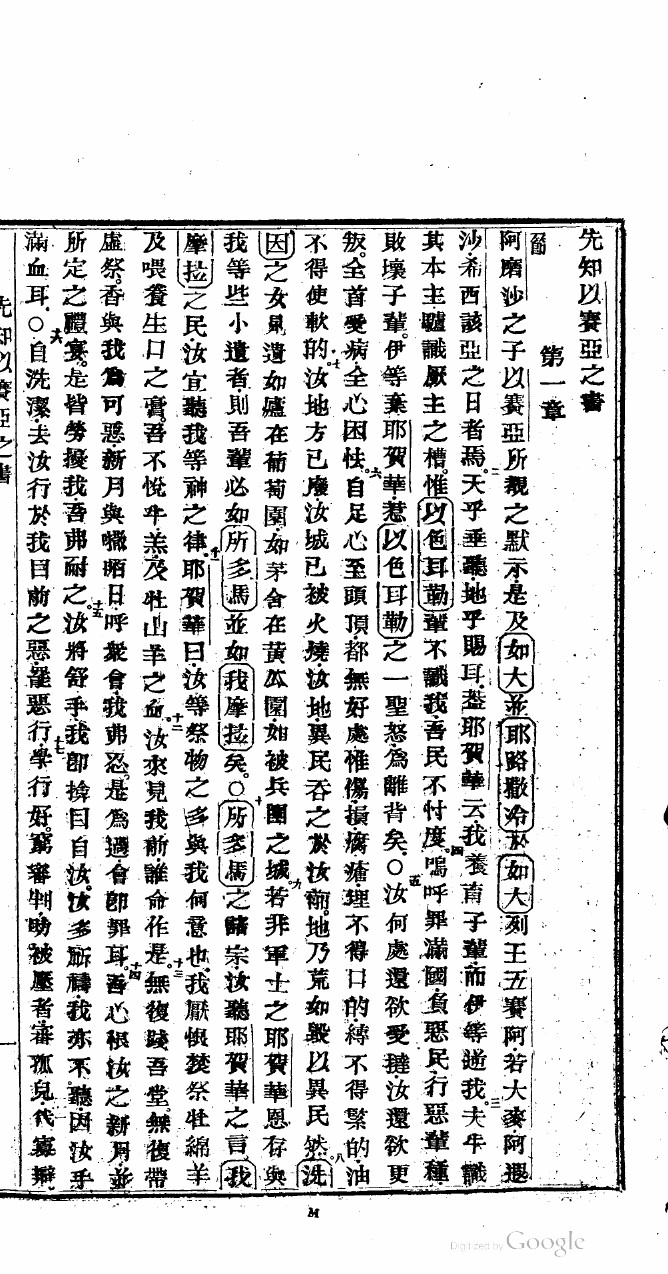 先知以賽亞之書
第一章
節
阿磨沙之子以賽亞所覩之默示是及如大並耶路撒冷於如大列王五賽阿若大麥阿遐
二
沙希西該亞之日者焉天乎垂聽地乎賜耳蓋耶賀華云我養育子輩而伊等逆我夫牛識
三
其本主驢識厥主之槽惟以色耳勒輩不識我吾民不忖度嗚呼罪滿國負惡民行惡輩種
四
敗壞子輩伊等棄耶賀華惹以色耳勒之一聖怒為離背矣○汝何處還欲受撻汝還欲更
五
叛全首受病全心困怯自足心至頭頂都無好處惟傷損腐瘡理不得口的縛不得繫的油
六
不得使軟的汝地方已廢汝城已被火燒汝地異民吞之於汝前地乃荒如毀以異民然洗
七
八
因之女見遺如廬在葡萄園如茅舍在黃瓜園如被兵圍之城若非軍士之耶賀華恩存與
九
我等些小遺者則吾輩必如所多馬並如我摩拉矣○所多馬之諸宗汝聽耶賀華之言我
十
摩拉之民汝宜聽我等神之律耶賀華曰汝等祭物之多與我何意也我厭恨焚祭牡綿羊
十一
及喂養生口之膏吾不悅牛羔及牡山羊之血汝來見我前誰命作是無復踐吾堂無復帶
十二
十三
虛祭香與我為可惡新月與嘥咟日呼衆會我弗忍是為過會即罪耳吾心恨汝之新月並
十四
所定之禮宴是皆勞擾我吾弗耐之汝將舒手我即揜目自汝汝多祈禱我亦不聽因汝手
十五
滿血耳○自洗潔去汝行於我目前之惡罷惡行學行好尋審判助被壓者審孤兒代寡辯
十六
十七
先知以賽亞之書
一
M
Digitized by Google